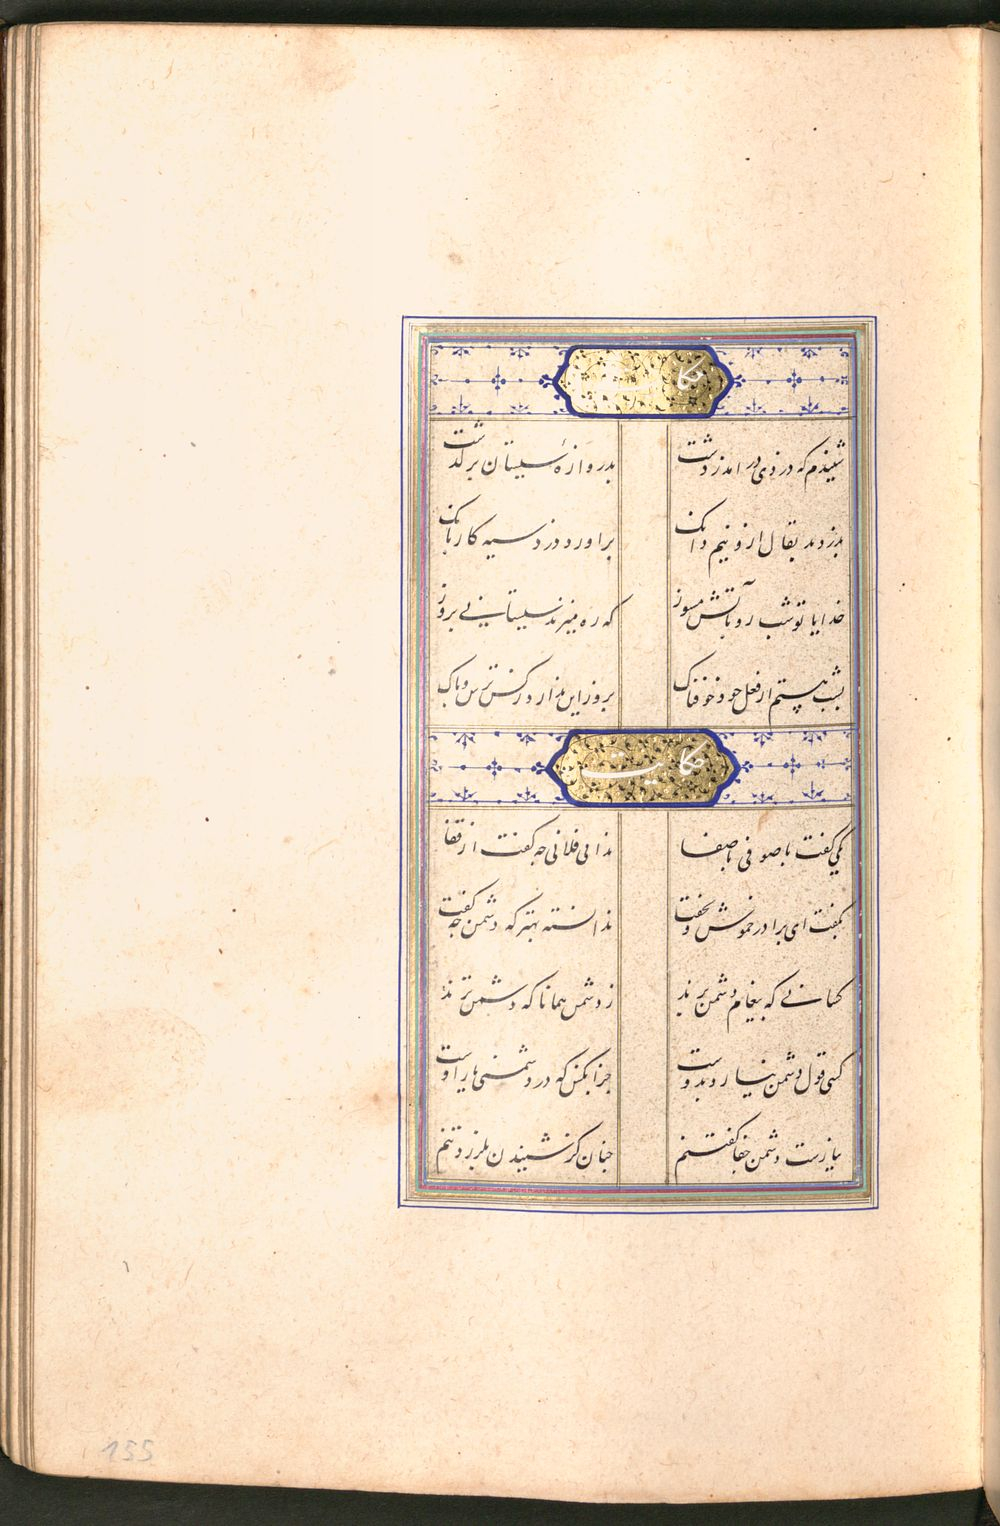 حکایت
شنیدم که دزدی در امد ز دشت بدروازهٔ سیستان بر گذشت
بدزدید بقال ازو نیم دانک براورد دزد سیه کار بانک
خدایا تو شب رو بآتش مسوز که ره میزند سیستانی بروز
بشب هستم از فعل خود خوفناک بروز این ندارد ز کس ترس وباک
حکایت
یکی گفت با صوفی با صفا ندانی فلانی چه گفت از قفا
بگفت ای برادر خموش و بخفت ندانسته بهتر که دشمن چه گفت
کسانی که پیغام دشمن برند ز دشمن همانا که دشمن ترند
کسی قول دشمن نیارد بدوست جز انکس که در دشمنی یار اوست
نیارست دشمن جفا گفتنم چنان کز شنیدن بلرزد تنم
155